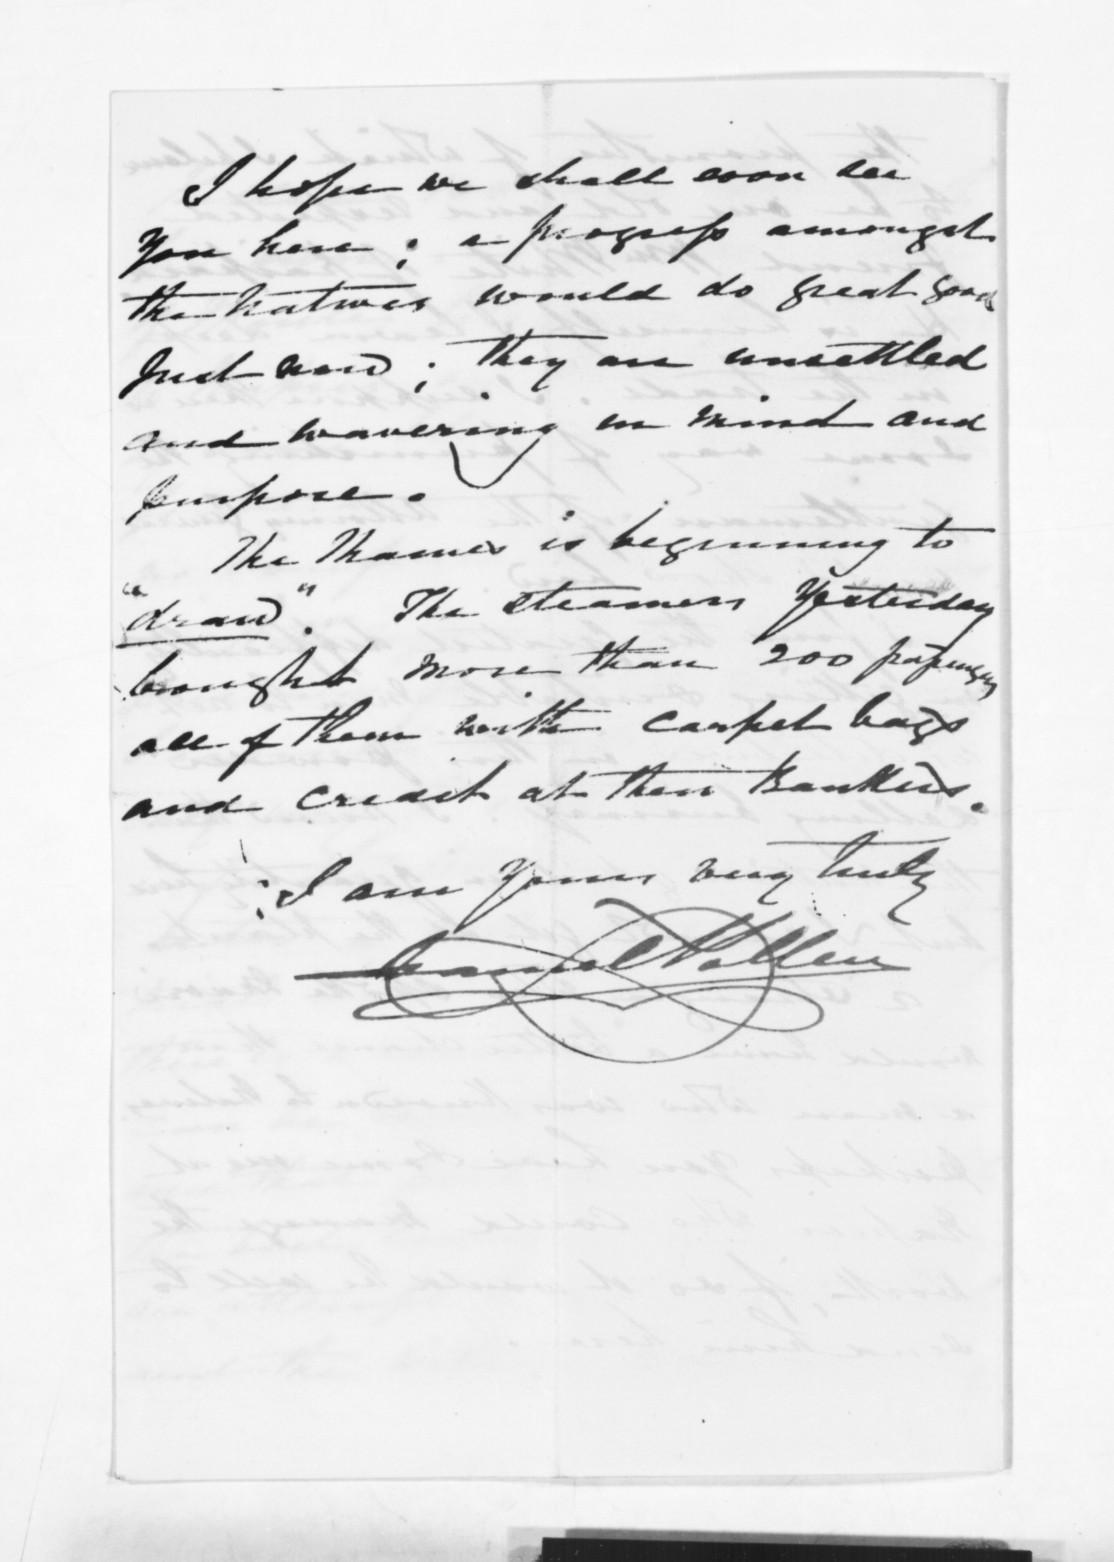 I hope we shall soon see
You here; a progress amongst
the Natives would do great good
Just now; they are unsettled
and wavering in mind and
purpose.
The Thames is beginning to
"draw". The steamers Yesterday
brought more than 200 passengers
all of them with carpet bags
and credit at their Bankers.
I am Yours very truly
Daniel Pollen